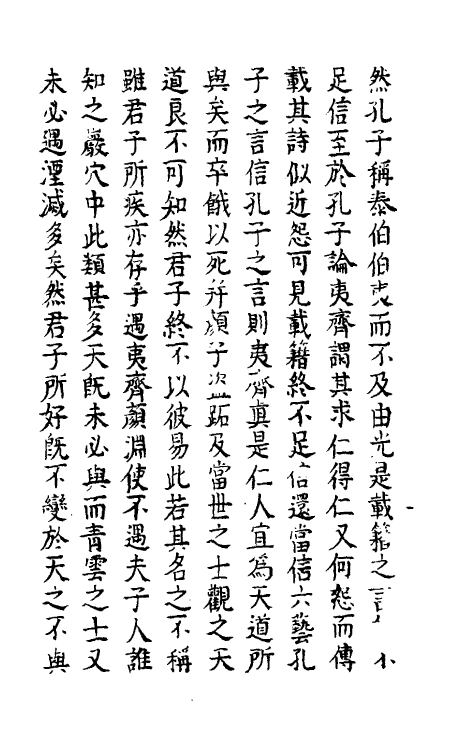 然孔子稱泰伯伯夷而不及由光是載籍之言不
足信至於孔子論夷齊謂其求仁得仁又何怨而傳
載其詩似近怨可見載籍終不足信還當信六藝孔
子之言信孔子之言則夷齊真是仁人宜為天道所
與矣而卒餓以死并顏子盜跖及當世之士觀之天
道良不可知然君子終不以彼易此若其名之不稱
雖君子所疾亦存乎遇夷齊顏淵使不遇夫子人誰
知之巖穴中此類甚多天既未必與而青雲之士又
未必遇湮滅多矣然君子所好既不變於天之不與